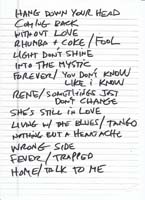 HANG DOWN YOUR HEAD
COMING BACK
WITHOUT LOVE
RHUMBA + COKE / FOOL
LIGHT DON'T SHINE
INTO THE MYSTIC
FOREVER / YOU DON'T KNOW
LIKE I KNOW
RENE / SOMETHINGS JUST
DON'T CHANGE
SHE'S STILL IN LOVE
LIVING W/ THE BLUES / TANGO
NOTHING BUT A HEARTACHE
WRONG SIDE
FEVER / TRAPPED
HOME / TALK TO ME